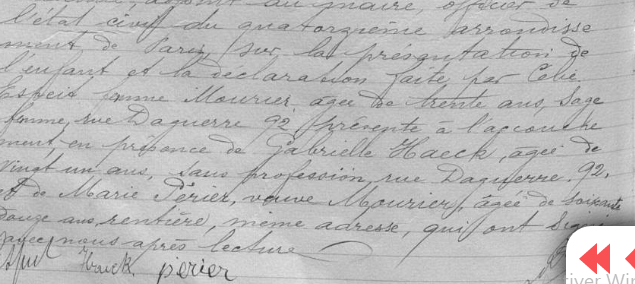 adjoint au maire, officier de
l'état civil du quatorzième arrondisse
ment de Paris, sur la présentation de
l'enfant et la déclaration faite par Célie
Espeit femme Mourier, agée de trente ans, Sage
femme, rue Daguerre 92, présente à l'accouche
ment, en présence de Gabrielle Haeck, agée de
vingt un ans, sans profession, rue Daguerre, 92,
et de Marie Périer, veuve Mourier, âgée de soixante
douze ans, rentière, même adresse, qui ont signé
avec nous après lecture
Haeck périer